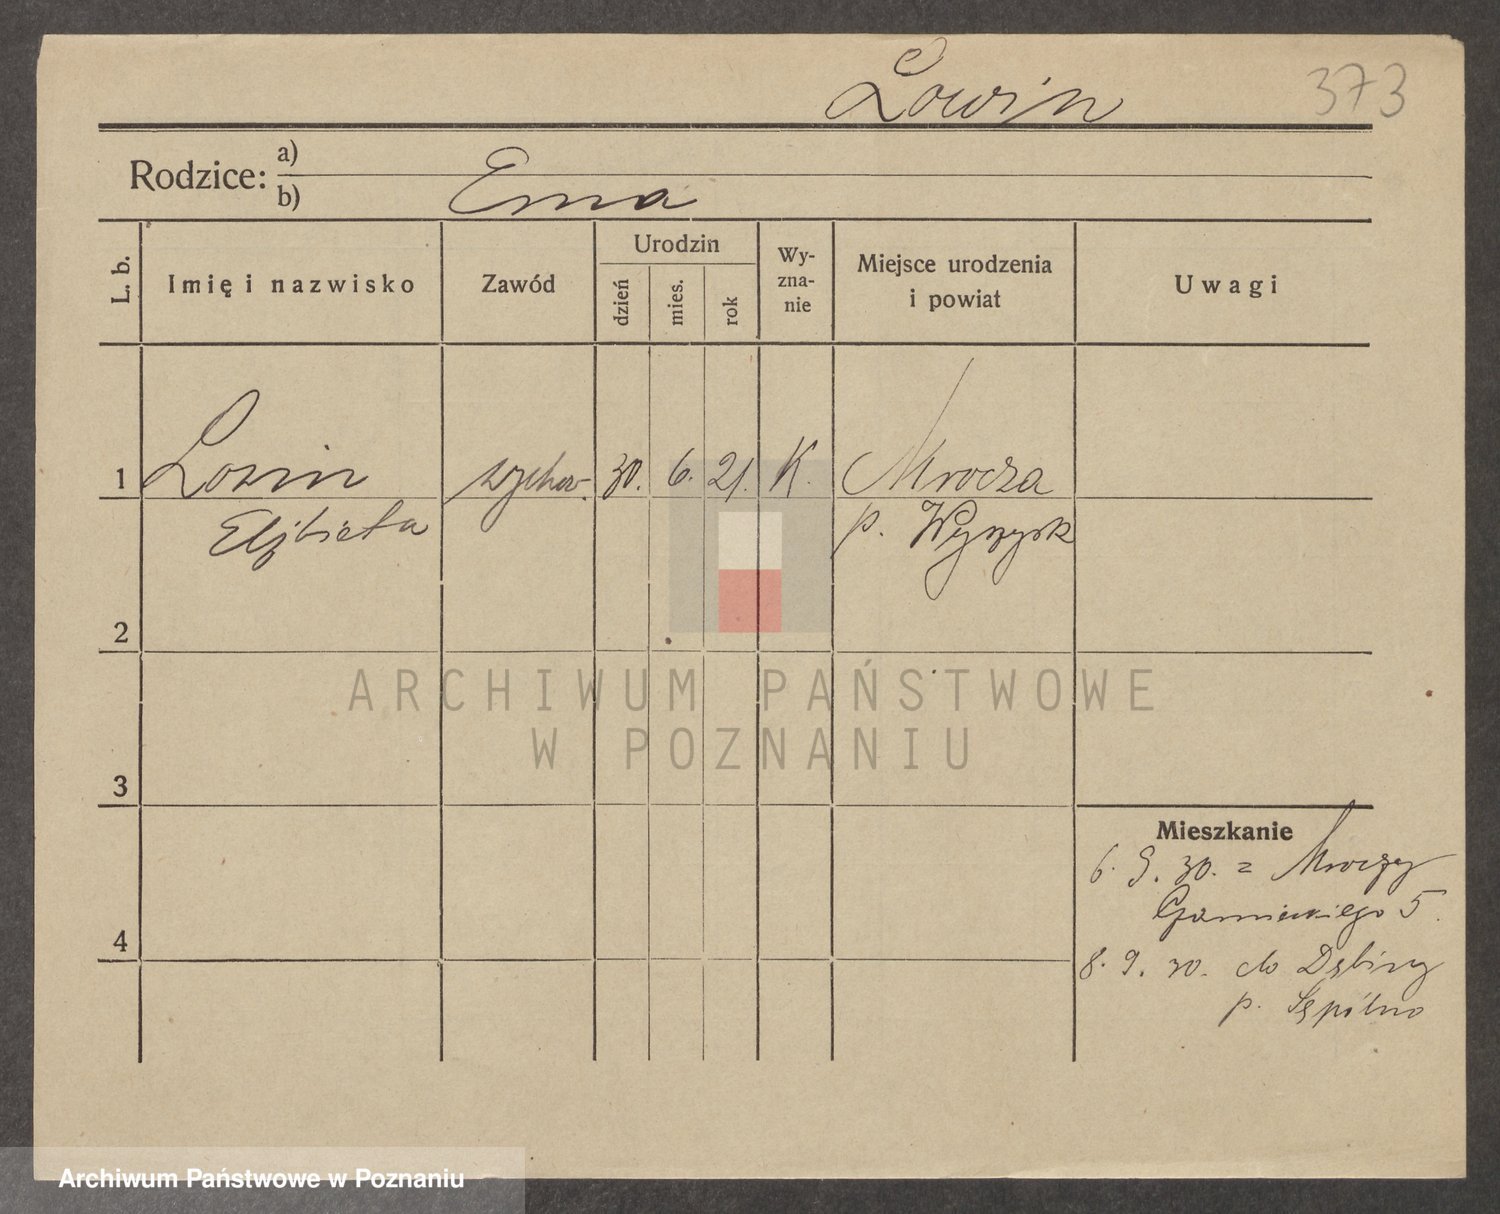 Lowin
373
Rodzice: a)
b) Ema
L. b.
Imię i nazwisko
Zawód
Urodzin
dzień
mies.
rok
Wy-
zna-
nie
Miejsce urodzenia
i powiat
Uwagi
1 Lowin 30. 6. 21. K. Mrocza
Elżbieta p. Wyrzysk
2
3
4
Mieszkanie
6. 9. 30. z Mroczy
5.
8. 9. 30. do Dębiny
p. Sępólno
ARCHIWUM PAŃSTWOWE
W POZNANIU
Archiwum Państwowe w Poznaniu